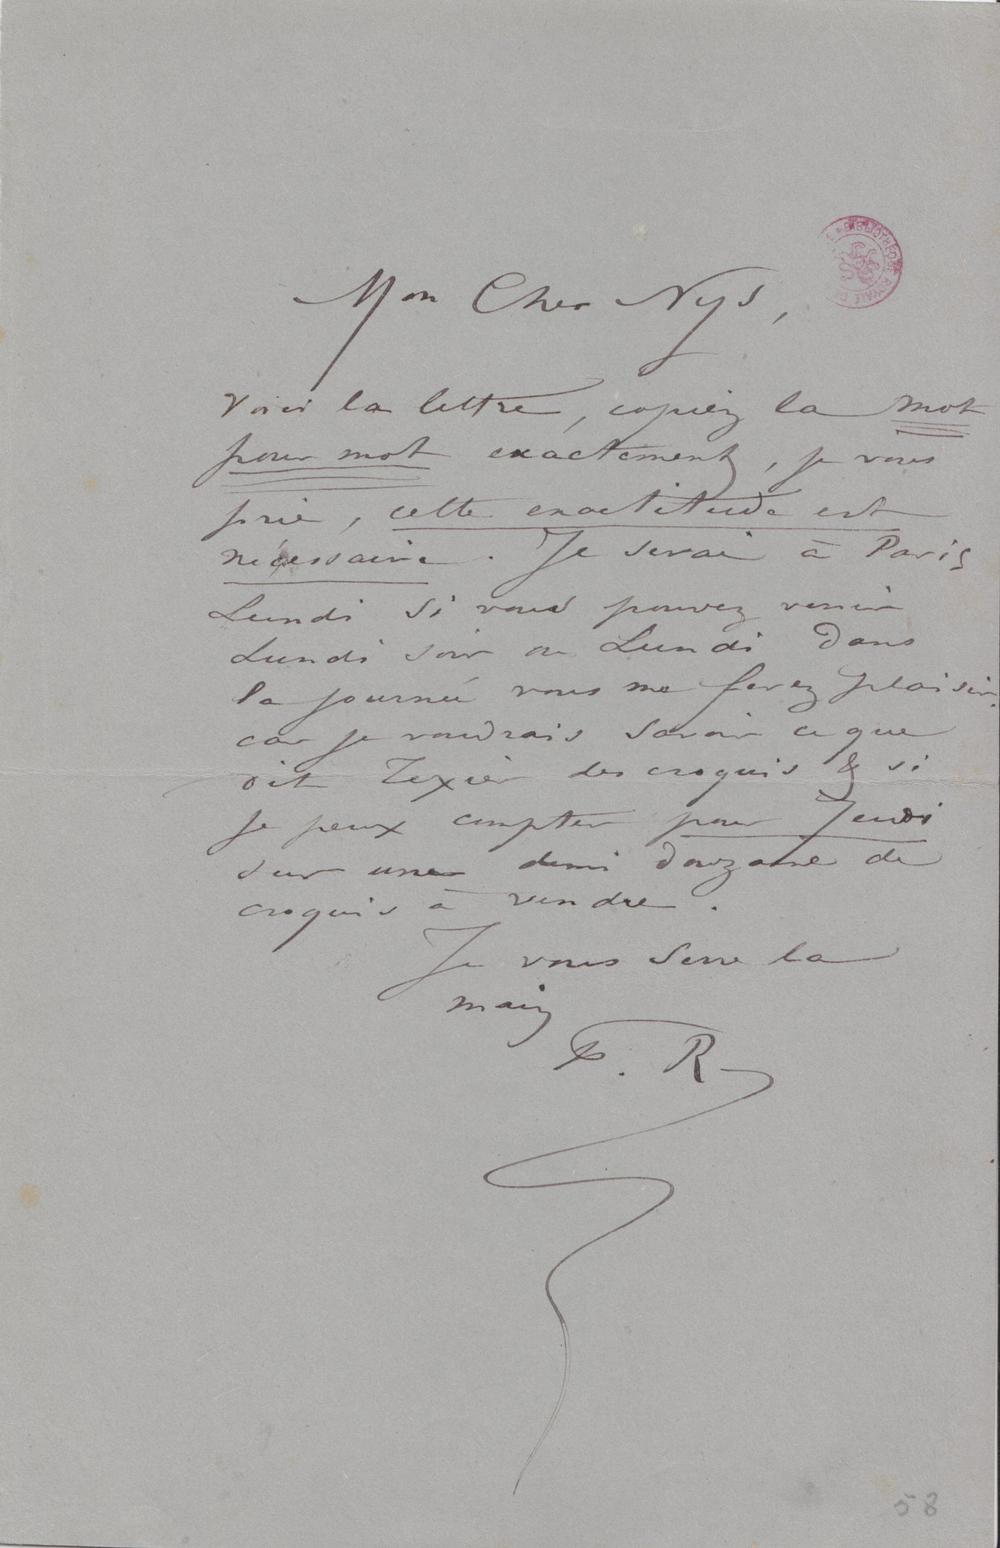 Mon Cher Nys,
Voici la lettre, copiez la mot
pour mot exactement, je vous
prie, cette exactitude est
nécessaire. Je serai à Paris
Lundi si vous pouvez venir
Lundi soir ou Lundi dans
la journée vous me ferez plaisir.
car je voudrais savoir ce que
dit Texier des croquis & si
je peux compter pour Jeudi
sur une demi douzaine de
croquis à vendre.
Je vous serre la
main
F. R
BIBLIOTHÈQUE ROYALE
58